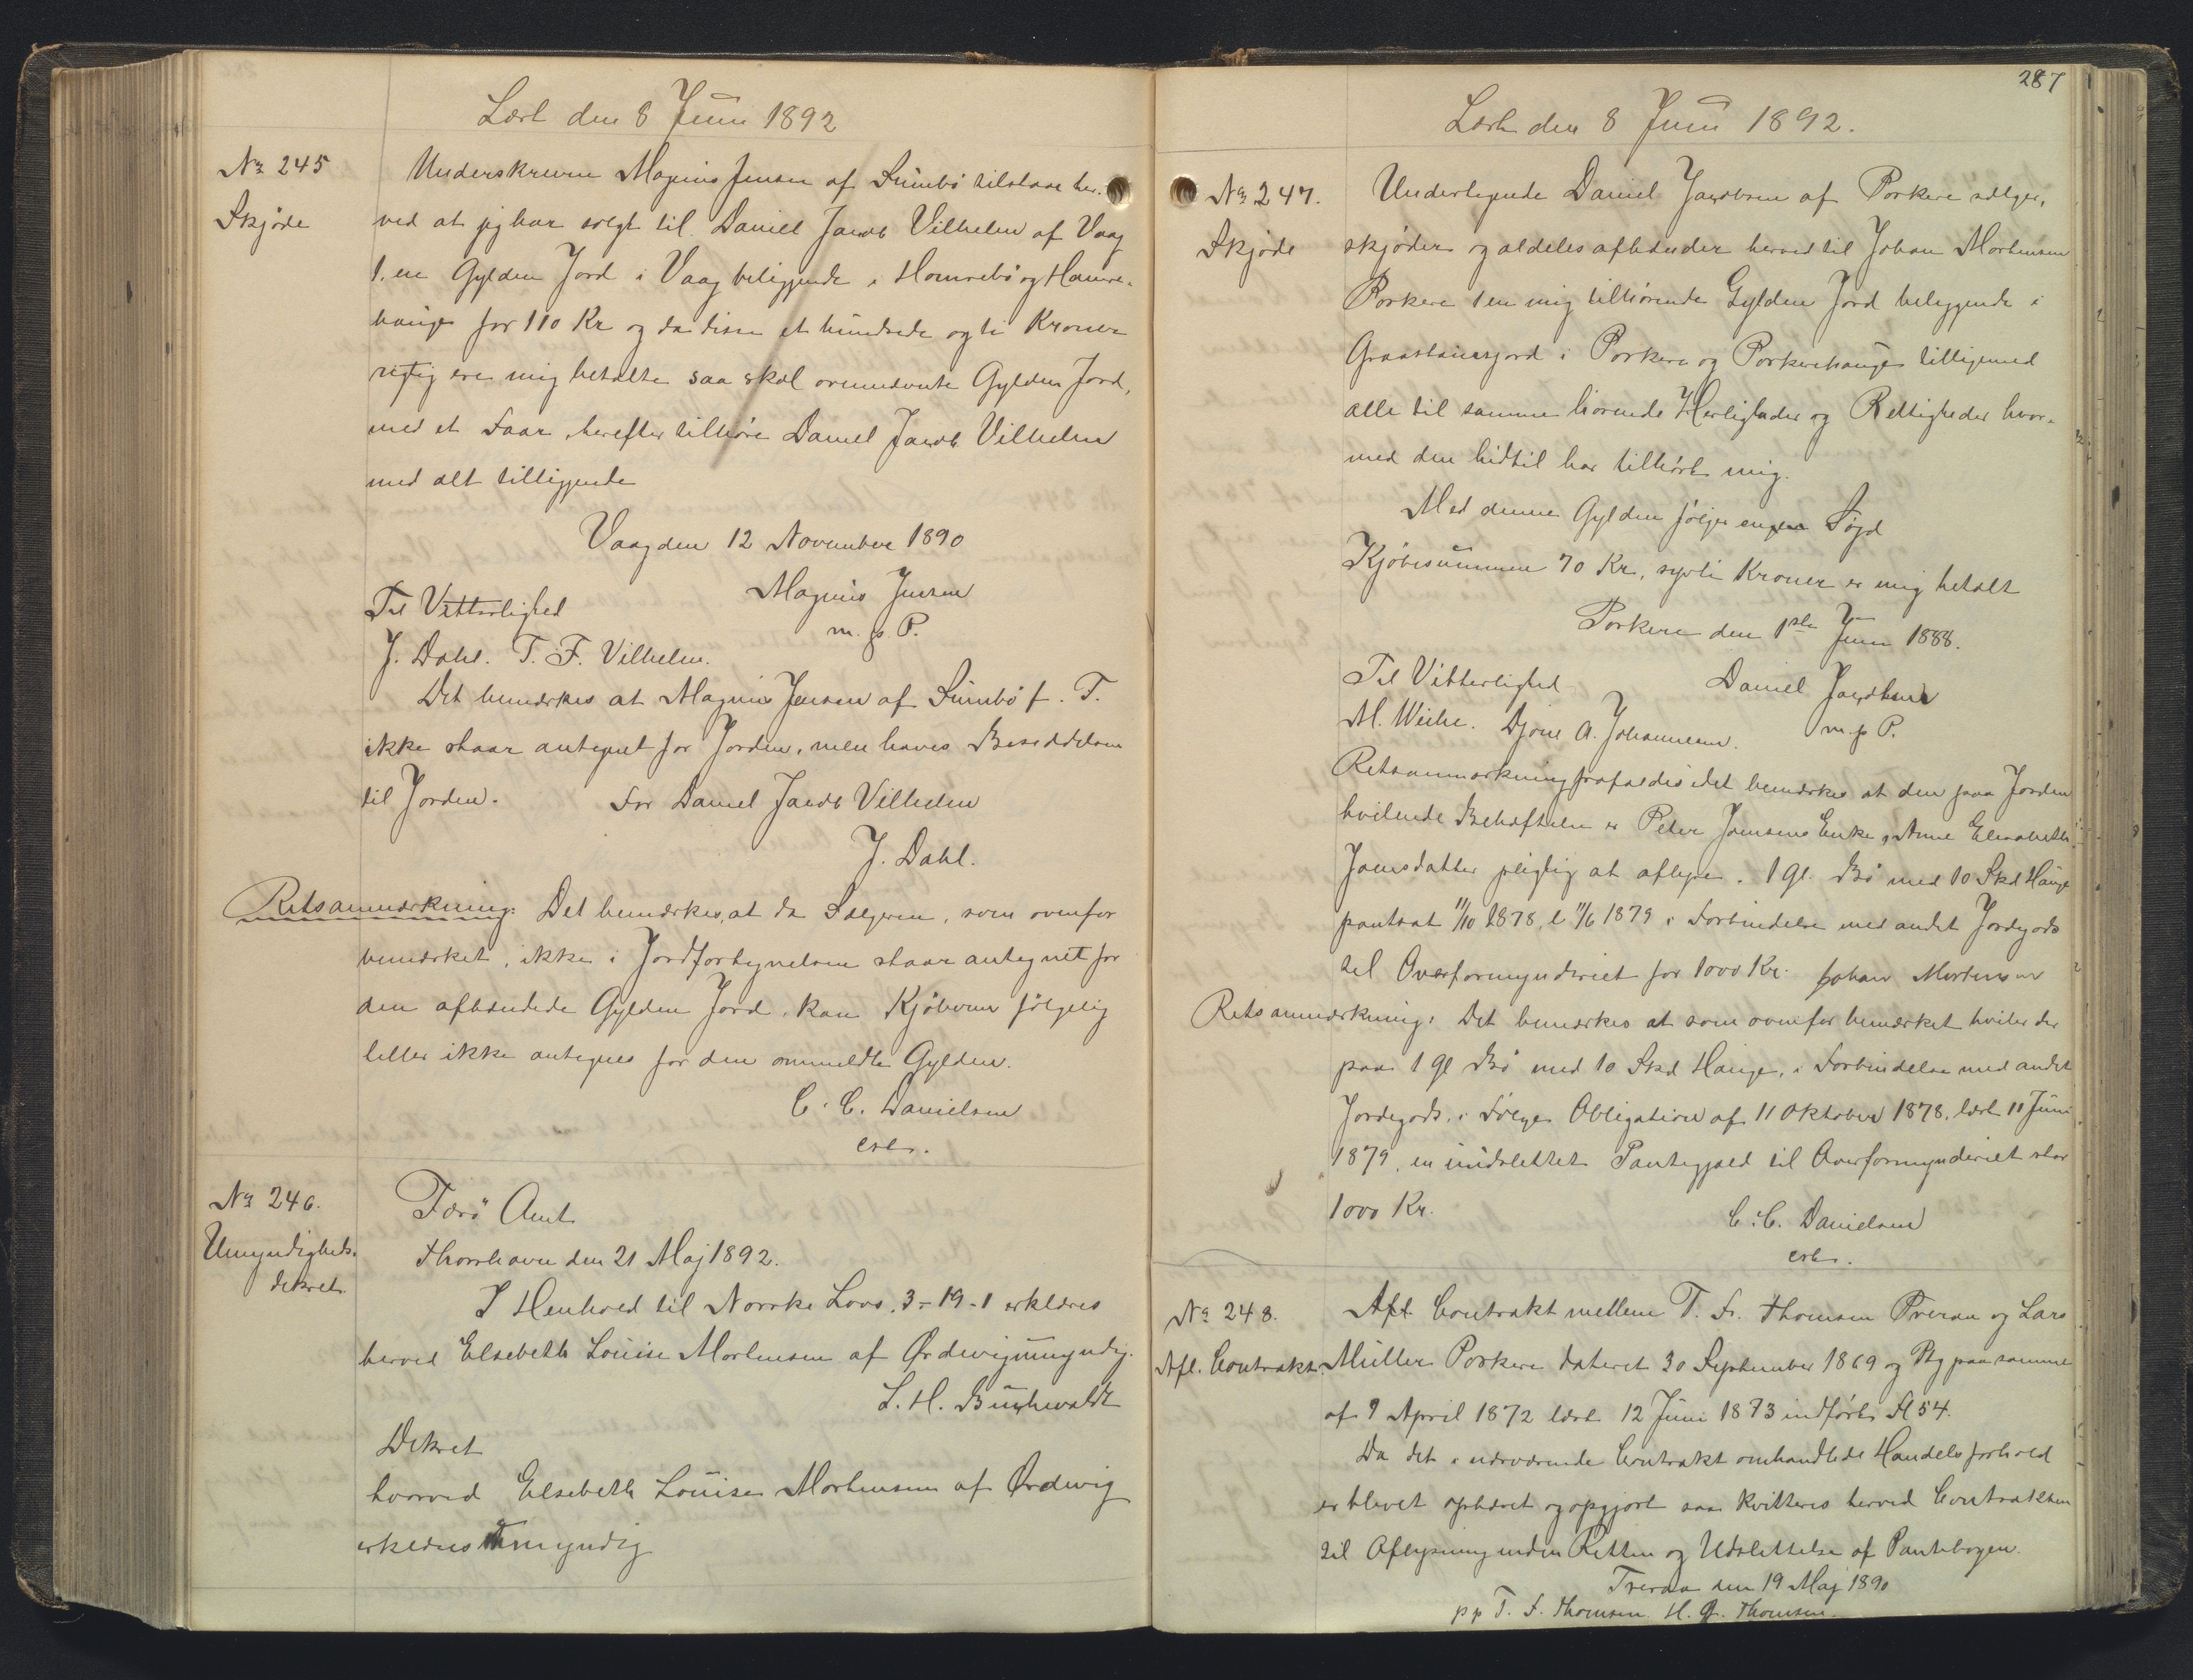 Læst den 8 Juni 1892
No 245
Skjøde
Underskrevne Magnus Jensen af Sumbø tilstaar her-
ved at jeg har solgt til Daniel Jacob Vilhelm af Vaag
1. en Gylden Jord i Vaag beliggende i Homrebø og Hamre-
hauge for 110 Kr og da disse et hundrede og ti Kroner
rigtig ere mig betalte saa skal ovennævnte Gylden Jord,
med et Faar, herefter tilhøre Daniel Jacob Vilhelm
med alt tilliggende
Vaag den 12 November 1890
Magnus Jensen
m. p. P.
Til Vitterlighed
J. Dahl. T. F. Vilhelm.
Det bemærkes at Magnus Jensen af Sumbø f. T.
ikke staar antegnet for Jorden, men haves Besiddelsen
til Jorden. For Daniel Jacob Vilhelm
J. Dahl.
Retsanmærkning: Det bemærkes, at da Sælgeren, som ovenfor
bemærket, ikke i Jordfortegnelsen staar antegnet for
den afhændede Gylden Jord, kan Kjøberen følgelig
heller ikke antegnes for den ommeldte Gylden.
C. C. Danielsen
cst.
No 246.
Umyndigheds-
dekret.
Færø Amt
Thorshavn den 21 Maj 1892.
I Henhold til Norske Lovs. 3-19-1 erklæres
herved Elsebeth Louise Mortensen af Ørdevig umyndig.
L. H. Buchwaldt
Dekret
hvorved Elsebeth Louise Mortensen af Ørdevig
erklæres Umyndig
287
Læst den 8 Juni 1892.
No 247.
Skjøde
Undertegnede Daniel Jacobsen af Porkere sælger,
skjøder og aldeles afhænder herved til Johan Mortensen
Porkere 1 en mig tilhørende Gylden Jord beliggende i
i Porkere og Porkerehauge tilligemed
alle til samme hørende Herligheder og Rettigheder hvor-
med den hidtil har tilhørt mig.
Med denne Gylden følger ingen Søjd
Kjøbesummen 70 Kr, syvti Kroner er mig betalt
Porkere den 1ste Juni 1888.
Til Vitterlighed
Daniel Jacobsen
m. p P.
M. Weihe. Djone A. Johannesen.
Retsanmærkning frafaldes idet bemærkes at den paa Jorden
hvilende Behæftelse er Peter Joensens Enke, Anne Elisabeth
Joensdatter pligtig at aflyse. 1 Gl. Bø med 10 Skd Hauge
pantsat 11/10 1878, l 11/6 1879 i Forbindelse med andet Jordegods
til Overformynderiet for 1000 Kr. Johan Mortensen
Retsanmærkning: Det bemærkes at som ovenfor bemærket hviler der
paa 1 Gl Bø med 10 Skd Hauge, i Forbindelse med andet
Jordegods, i Følge Obligation af 11 Oktober 1878, læst 11 Juni
1879, en uudslettet Pantegjæld til Overformynderiet stor
1000 Kr.
C. C. Danielsen
cst.
No 248.
Afl. Contrakt.
Afl. Contrakt mellem T. F. Thomsen Tveraa og Lars
Müller Porkere dateret 30 September 1869 og Ptg paa samme
af 9 April 1872 læst 12 Juni 1873 indført Fl 54.
Da det i nærværende Contrakt omhandlede Handelsforhold
er blevet ophævet og opgjort saa kvitteres herved Contrakten
til Aflysning inden Retten og Udslettelse af Pantebogen.
Tveraa den 19 Maj 1890
pp T. F. Thomsen. H. Thomsen.